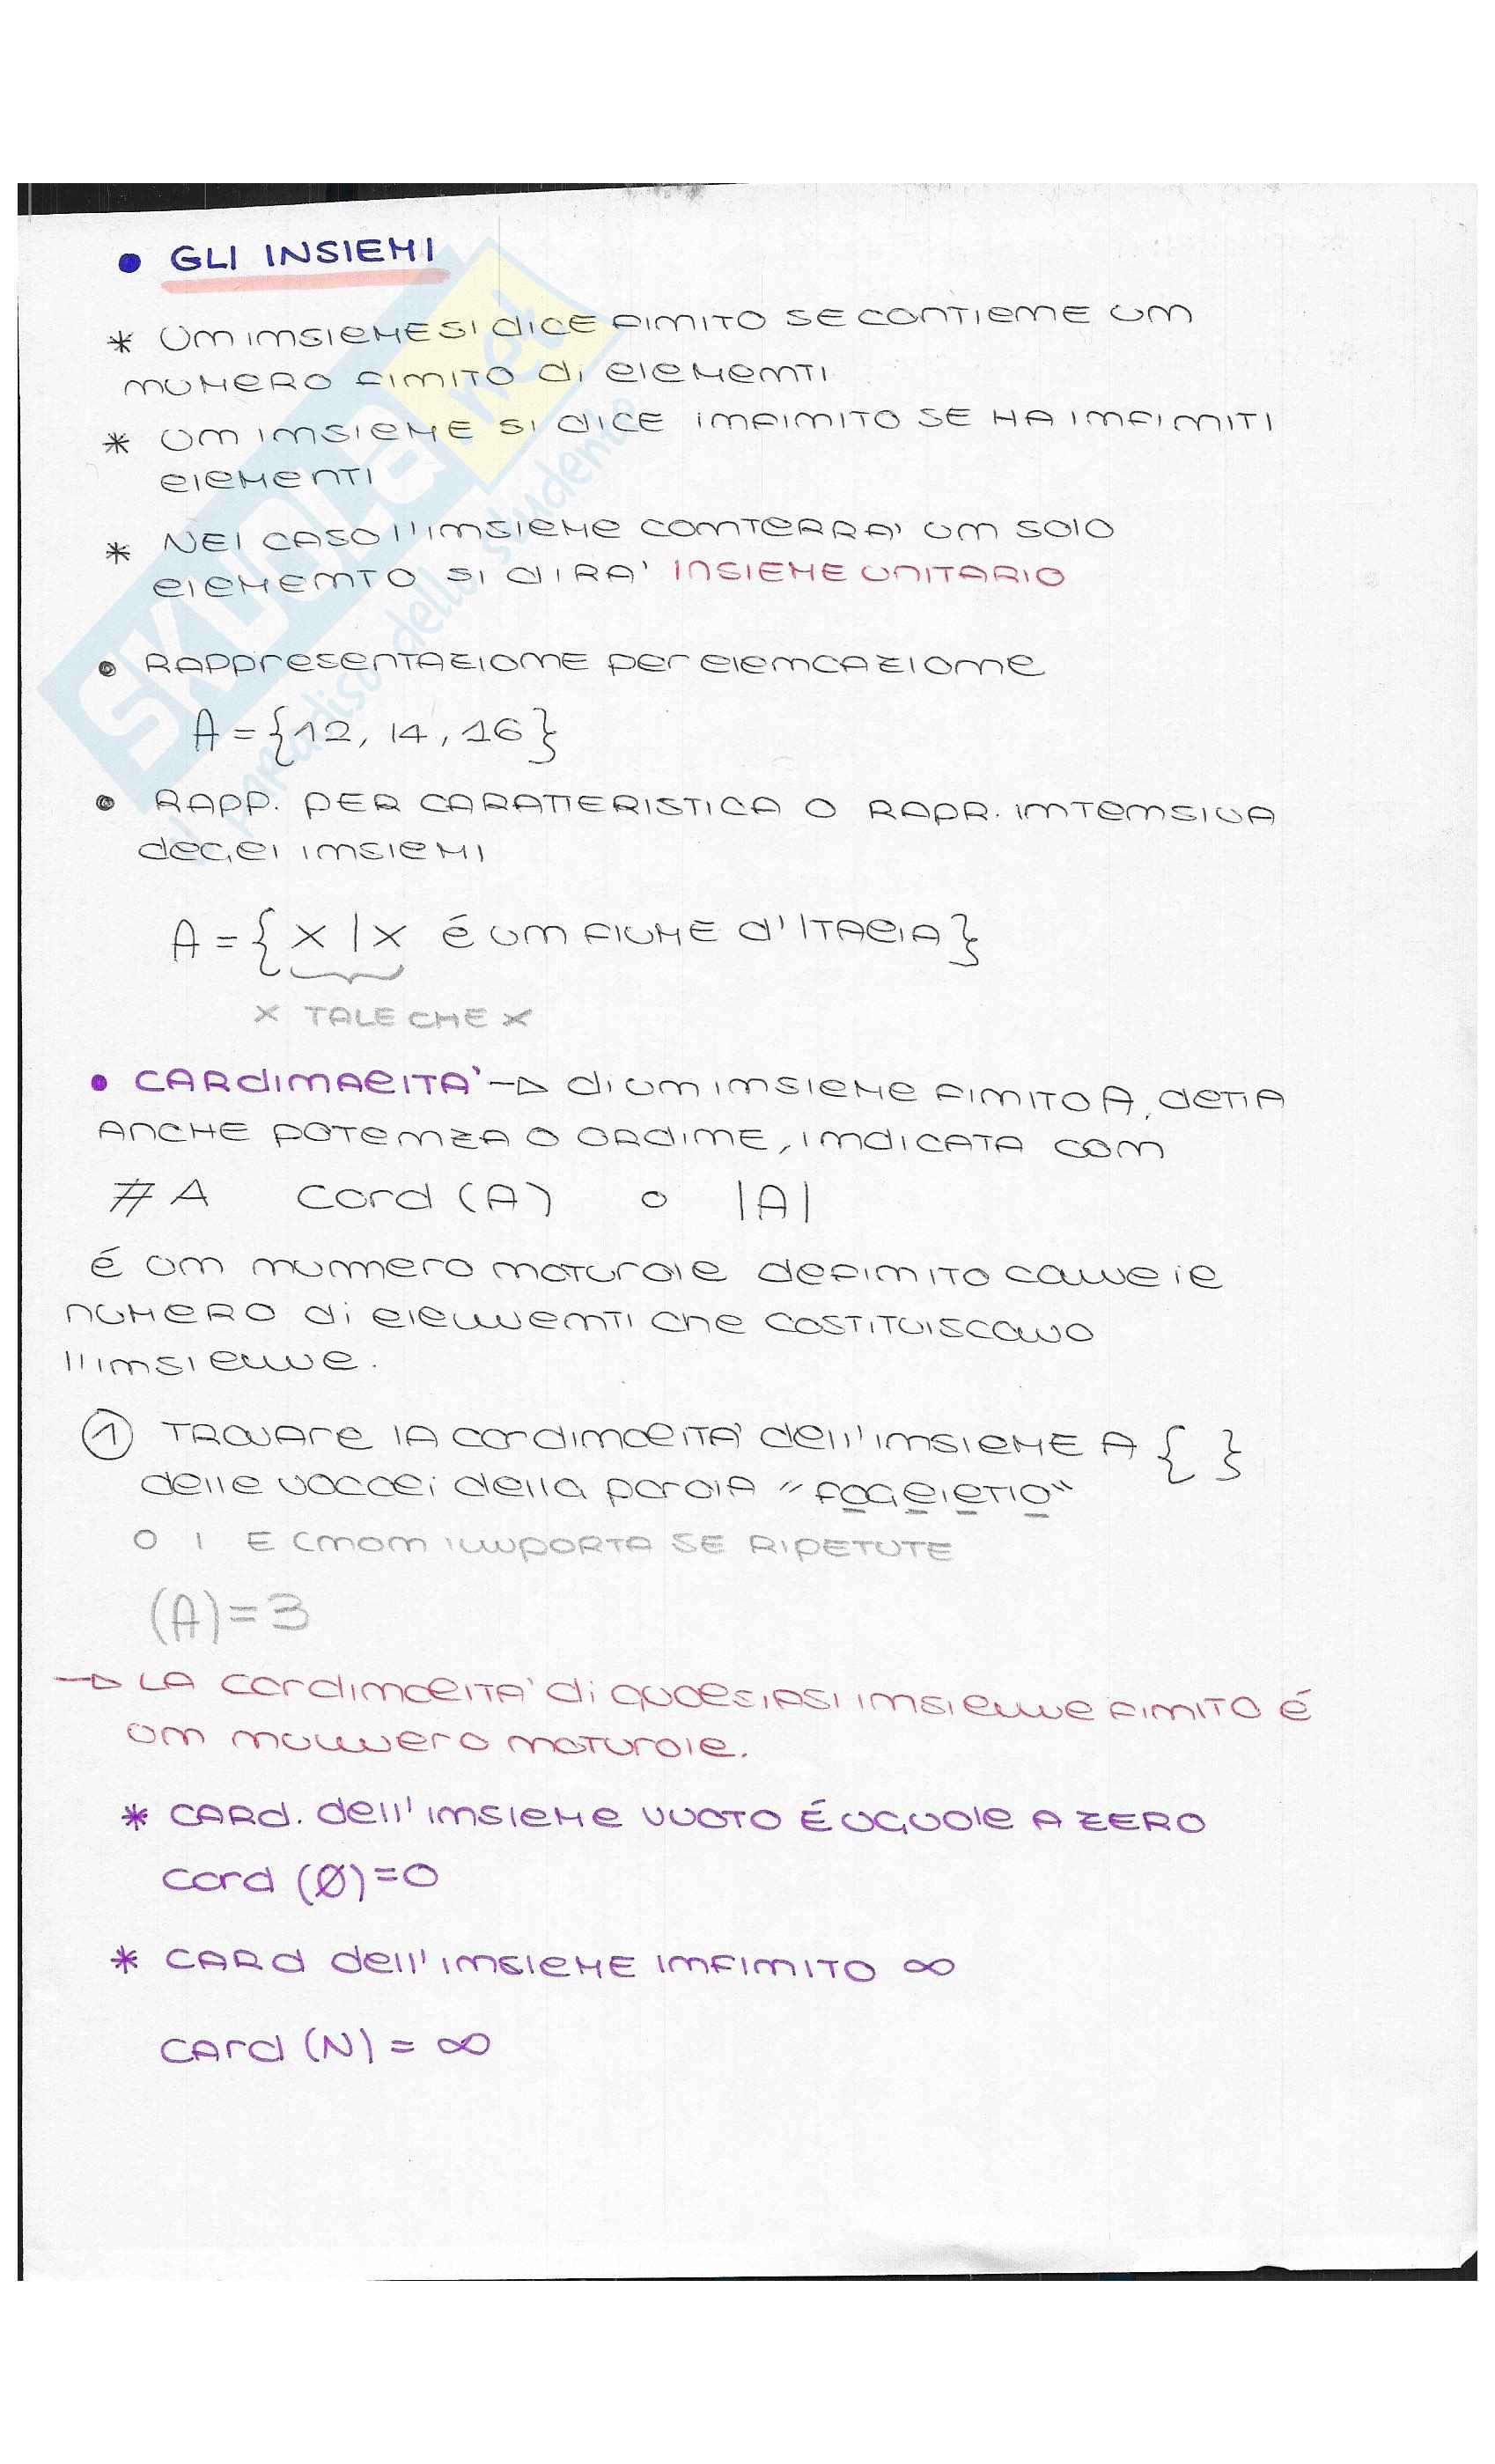 • GLI INSIEMI
* Un insieme si dice finito se contiene un
numero finito di elementi
* Un insieme si dice infinito se ha infiniti
elementi
* Nel caso l'insieme conterrà un solo
elemento si dirà insieme unitario
• Rappresentazione per elencazione
A = {12, 14, 16}
• Rapp. per caratteristica o rapr. intensiva
degli insiemi
A = {x | x é un fiume d'Italia}
x tale che x
• Cardinalità → di un insieme finito A, detta
anche potenza o ordine, indicata con
# A card (A) o |A|
é un numero naturale definito come il
numero di elementi che costituiscono
l'insieme.
① Trovare la cardinalità dell'insieme A { }
delle vocali della parola "foglietto"
o i e (non importa se ripetute
(A) = 3
→ La cardinalità di qualsiasi insieme finito é
un numero naturale.
* Card. dell'insieme vuoto é uguale a zero
card (Ø) = 0
* Card dell'insieme infinito ∞
card (N) = ∞
SKUOLA.net
il paradiso dello studente